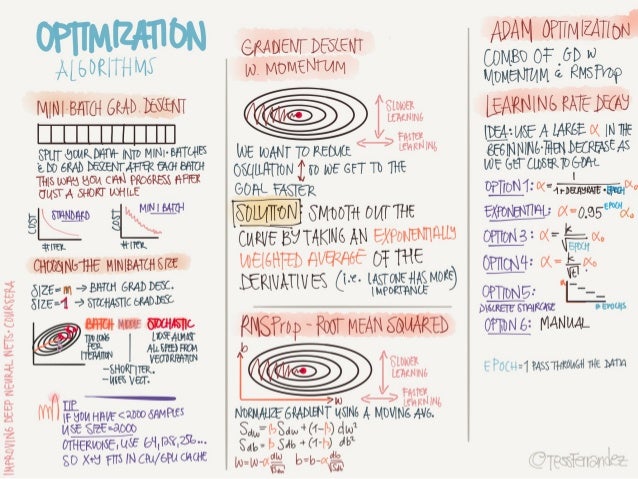 OPTIMIZATION
ALGORITHMS
MINI BATCH GRAD. DESCENT
SPLIT YOUR DATA INTO MINI-BATCHES
& DO GRAD DESCENT AFTER EACH BATCH
THIS WAY YOU CAN PROGRESS AFTER
JUST A SHORT WHILE
COST
STANDARD
# ITER
COST
MINI BATCH
# ITER
CHOOSING THE MINIBATCH SIZE
SIZE=m → BATCH GRAD DESC.
SIZE=1 → STOCHASTIC GRAD DESC
BATCH
TOO LONG
PER
ITERATION
MIDDLE
STOCHASTIC
LOSE ALMOST
ALL SPEED FROM
VECTORIZATION
-SHORT ITER.
-USES VECT.
TIP
IF YOU HAVE <2000 SAMPLES
USE SIZE=2000
OTHERWISE, USE 64, 128, 256...
SO X+Y FITS IN CPU/GPU CACHE
IMPROVING DEEP NEURAL NETS · COURSERA
GRADIENT DESCENT
W. MOMENTUM
SLOWER
LEARNING
FASTER
LEARNING
WE WANT TO REDUCE
OSCILLATION ↕ SO WE GET TO THE
GOAL FASTER
SOLUTION: SMOOTH OUT THE
CURVE BY TAKING AN EXPONENTIALLY
WEIGHTED AVERAGE OF THE
DERIVATIVES (i.e. LAST ONE HAS MORE
IMPORTANCE)
RMSProp - ROOT MEAN SQUARED
b
W
SLOWER
LEARNING
FASTER
LEARNING
NORMALIZE GRADIENT USING A MOVING AVG.
Sdw = β Sdw + (1-β) dw²
Sdb = β Sdb + (1-β) db²
W=W-α dw/√Sdw b=b-α db/√Sdb
ADAM OPTIMIZATION
COMBO OF GD W
MOMENTUM & RMSProp
LEARNING RATE DECAY
IDEA: USE A LARGE α IN THE
BEGINNING. THEN DECREASE AS
WE GET CLOSER TO GOAL
OPTION 1: α = 1/(1+DECAYRATE·EPOCH) α₀
EXPONENTIAL: α = 0.95^EPOCH α₀
OPTION 3: α = k/√EPOCH α₀
OPTION 4: α = k/√t α₀
OPTION 5:
DISCRETE STAIRCASE
α
# EPOCHS
OPTION 6: MANUAL
EPOCH = 1 PASS THROUGH THE DATA
©TessFerrandez